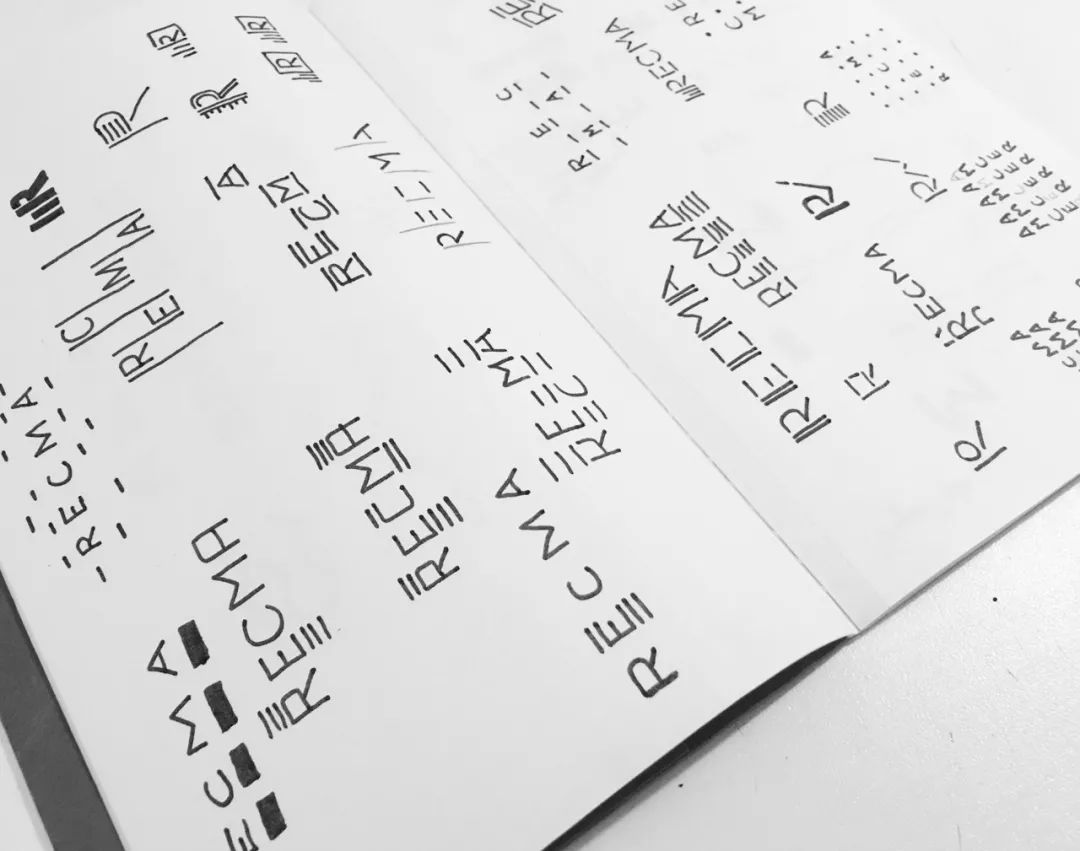 R
R
R
R
R
R
R
C M A
R E
R E C M
A
R E C M A
RECMA
RECMA
RECMA
RECMA
RECMA
M A
R E C
RECMA
R E
RECMA
R E C
M A
C.
M.
R E
R E C M A
R
R
R
RECMA
RECMA
RECMA
R
R
RECMA
RECMA
RECMA